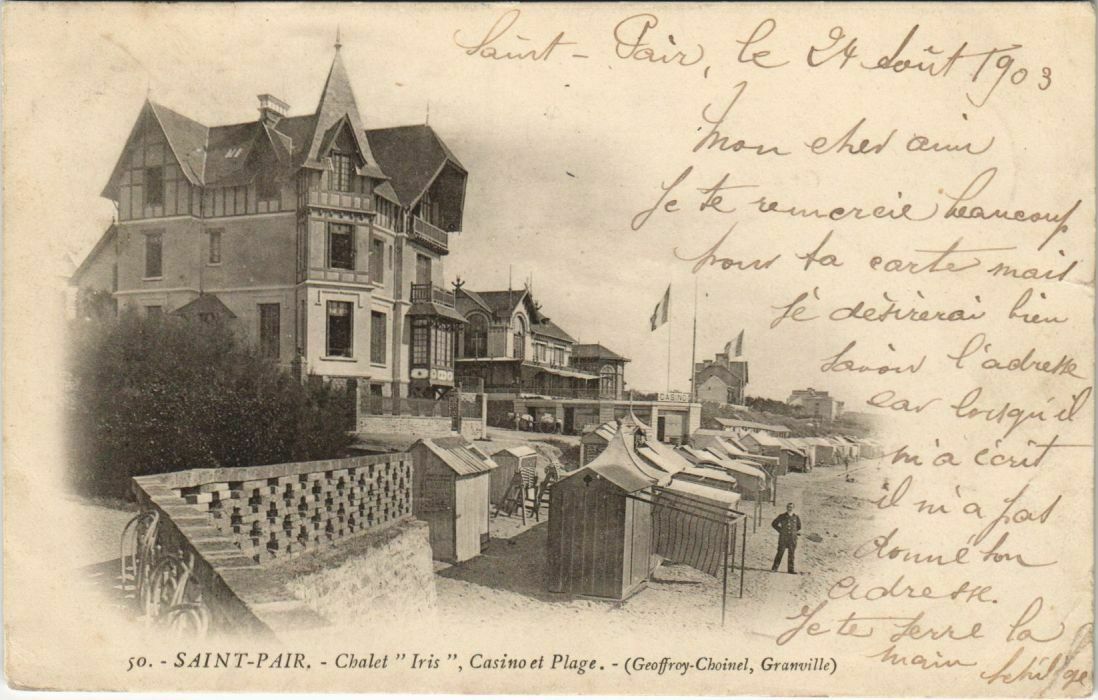 Saint-Pair, le 24 Août 1903
Mon cher ami
Je te remercie beaucoup
pour ta carte mais
je désirerai bien
savoir l'adresse
car lorsqu'il
m'a écrit
il m'a pas
donné son
adresse.
Je te serre la
main
CASINO
50. - SAINT-PAIR. - Chalet "Iris", Casino et Plage. - (Geoffroy-Choinel, Granville)